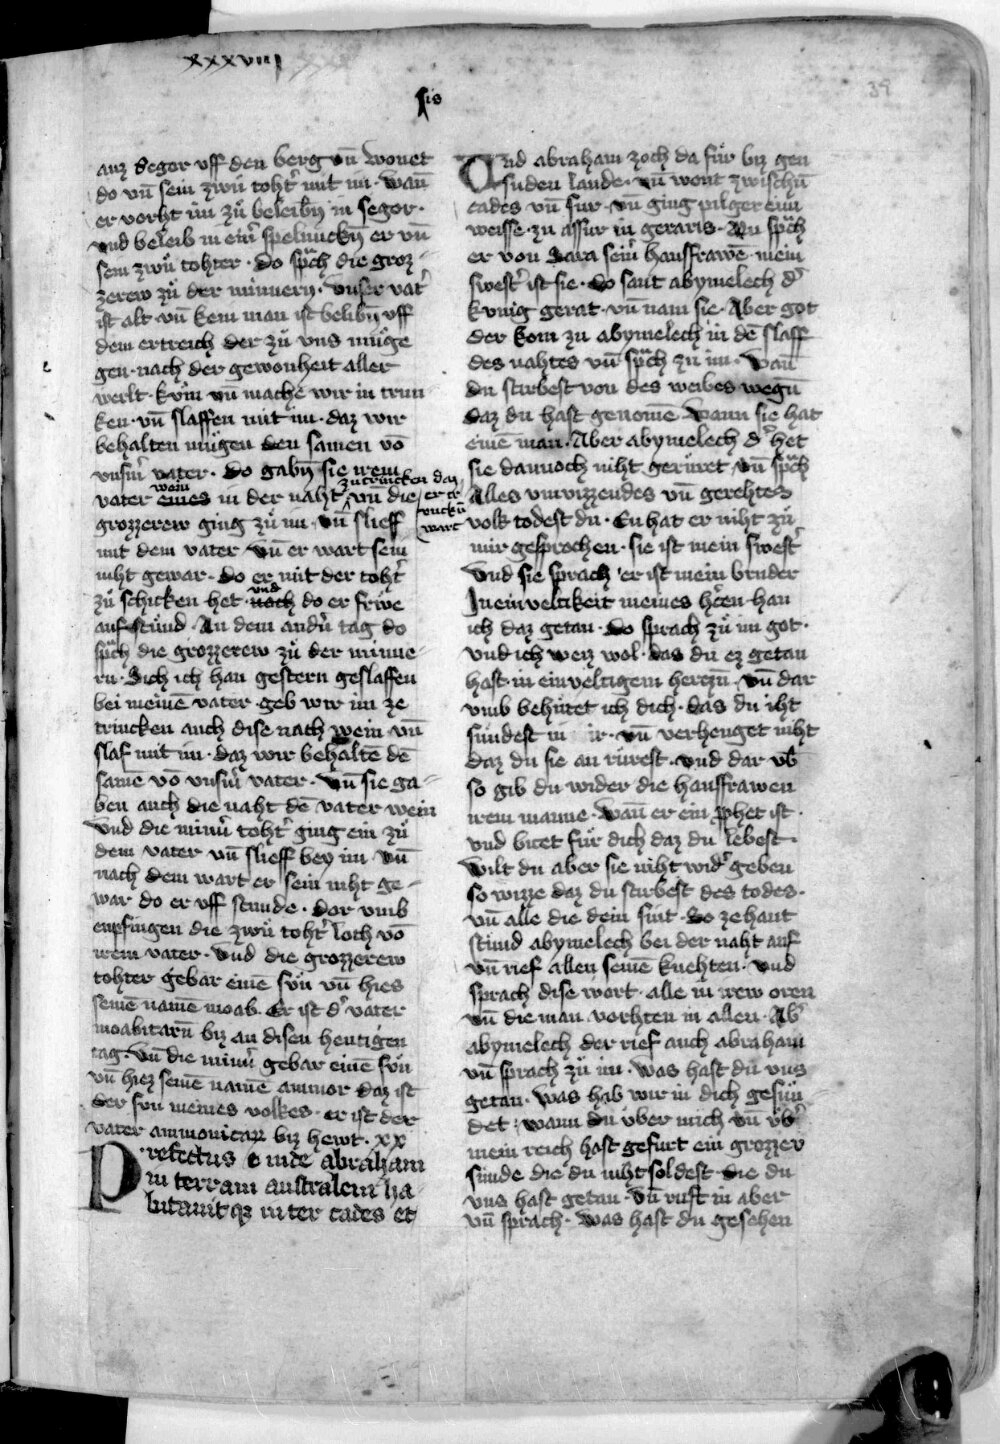 xxxviij
sis
39
auz Segor vff den berg vn̄ wonet
do vn̄ sein zwu̍ toht͛ mit im · wan̄
er vorht im zů beleibn̄ in segor ·
vnd beleib in ein͛ spelunckn̄ er vn̄
sein zwů tohter · do sp̄ch die groz-
zerew zů der minnern · vnser vat͛
ist alt · vn̄ kein man ist belibn̄ vff
dem ertreich der zů vns můge
gen · nach der gewonheit aller
werlt · kům vn̄ machē wir in trun
ken · vn̄ slaffen mit im · daz wir
behalten můgen den samen vō
vnsm͛ vater · do gabn̄ sie irem
zutrincken daz
wein
vater eines in der naht vn̄ die er tr
uncken
wart
grozzerew ging zů im · vn̄ slieff
mit dem vater vn̄ er wart sein
niht gewar · do er mit der toht͛
vnd
zů schicken het · noch do er frwe
auf stůnd · An dem andn̄ tag do
sp̄ch die grozzerew zů der minne-
rn · Sich ich han gestern geslaffen
bei meinē vater · geb wir im ze
trincken auch dise nach wein · vn̄
slaf mit im · daz wir behaltē dē
samē vō vnsm͛ vater · vn̄ sie ga-
ben auch die naht dē vater wein
vnd die minn͛ toht͛ ging ein zů
dem vater vn̄ slieff bey im vn̄
nach dem wart er sein niht ge-
war do er vff stunde · dor vmb
enpfingen die zwů toht͛ loth vō
irem vater · vnd die grozzerew
tohter gebar einē sůn vn̄ hies
seinē namē moab · Er ist d͛ vater
moabitarū biz an disen heutigen
tag · vn̄ die minn͛ gebar einē sůn
vn̄ hiez seinē namē ammor daz ist
der sůn meines volkes · er ist der
vater ammonitarū biz hewt · xx
Profectus inde abraham
in terram australem ha-
bitauit q̄ inter cades et
Und abraham zoch da fůr biz gen
suden lande · vn̄ wont zwischn̄
cades vn̄ sur · vn̄ ging pilgereim
weisse · zu assur in geraris · Nu sp̄ch
er von Sara sein͛ hausfrawē · mein
swest͛ ist sie · do sant abymelech d͛
kunig gerat · vn̄ nam sie · Aber got
der kom zu abymelech in dē slaff
des nahtes vn̄ sp̄ch zu im · van̄
du stirbest von des weibes wegn̄
daz du hast genomē · wann sie hat
eine man · Aber abymelech d͛ het
sie dannoch niht gerůret vn̄ sp̄ch
Alles vnwizzendes vn̄ gerehtes
volk todest du · En hat er niht zů
mir gesprochen · sie ist mein swest͛
Vnd sie sprach er ist mein bruder
In einveltikeit meines hc͛en han
ich daz getan · do sprach zů im got ·
vnd ich weiz wol · das du ez getan
hast in einveltigem hertzn · vn̄ dar
vmb behůtet ich dich · das du iht
sůndest in ir · vn̄ verhenget niht
daz du sie an růrest · vnd dar vb̄
so gib du wider die hausfrawen
irem manne · wan̄ er ein p̄phet ist ·
vnd bitet fůr dich daz du lebest ·
wilt du aber sie niht wid͛ geben
so wizze daz du stirbest des todes ·
vn̄ alle die dein sint · So zehant
stůnd abymelech bei der naht auf
vn̄ rief allen seinē knehten · vnd
sprach dise wort · alle in irew oren
vn̄ die man vorhten in allen · Ab͛
abymelech der rief auch abraham
vn̄ sprach zů im · was hast du vns
getan · was hab wir in dich gesůn
det : wann du ůber mich vn̄ ůb͛
mein reich hast gefurt ein grozzer
sůnde die du niht soldest · die du
vns hast getan · vn̄ ruft in aber
vn̄ sprach · was hast du gesehen